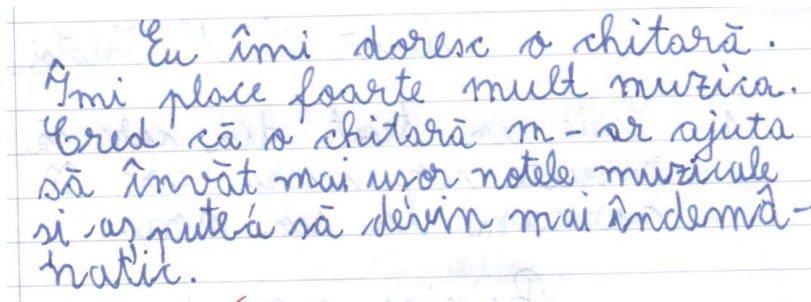 Eu îmi doresc o chitară.
Îmi place foarte mult muzica.
Cred că o chitară m-ar ajuta
să învăt mai usor notele muzicale
si aș putea să devin mai îndemâ-
natic.